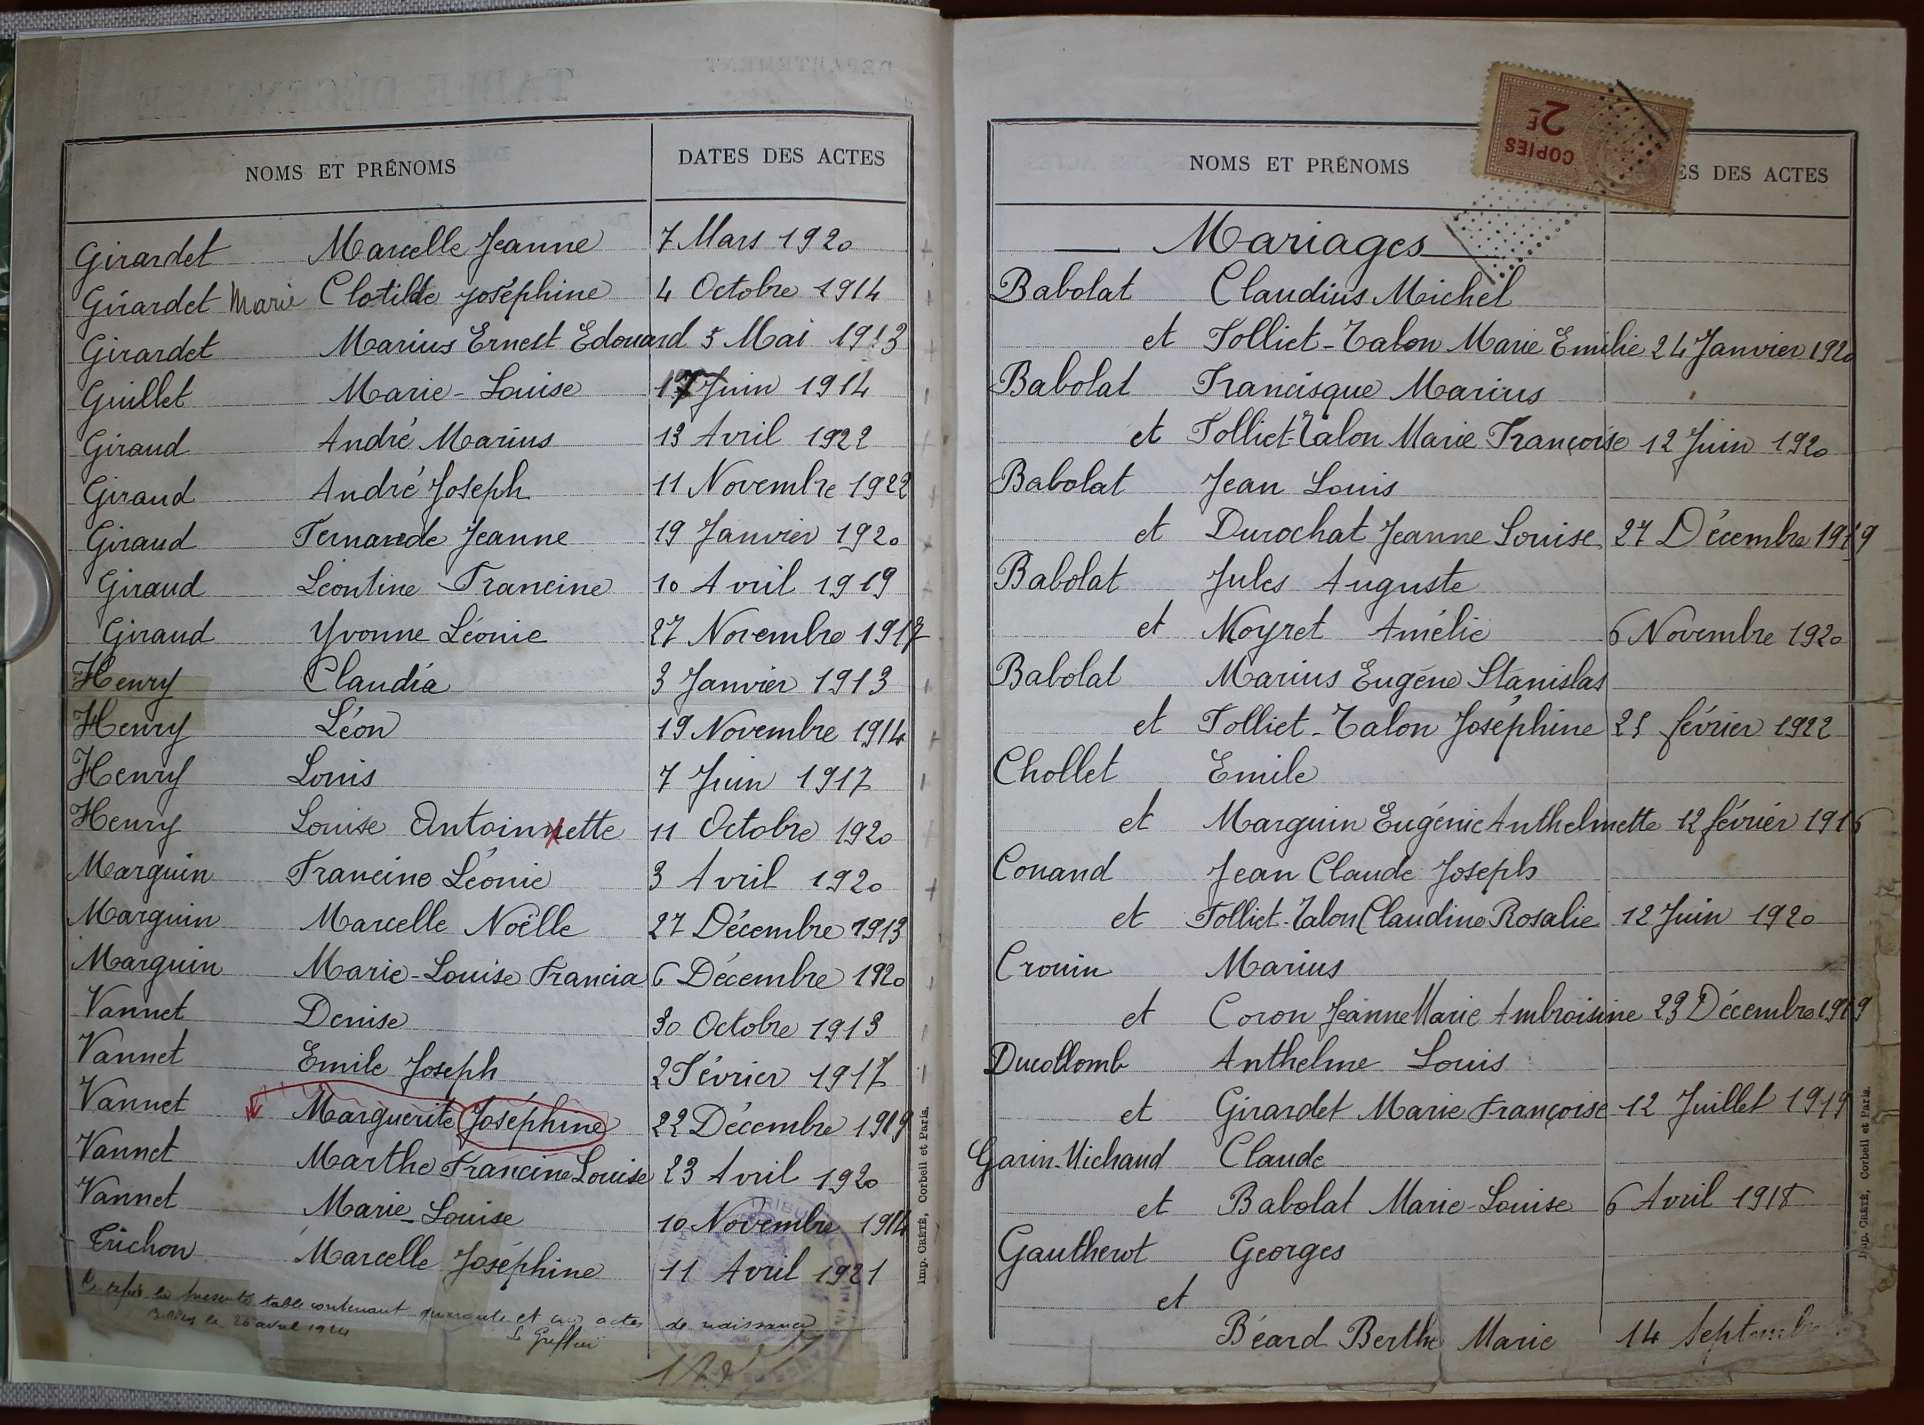 NOMS ET PRÉNOMS DATES DES ACTES
Girardet Marcelle Jeanne 7 Mars 1920
Girardet Marie Clotilde Joséphine 4 Octobre 1914
Girardet Marius Ernest Edouard 5 Mai 1913
Guillet Marie-Louise 17 Juin 1914
Giraud André Marius 13 Avril 1922
Giraud André Joseph 11 Novembre 1922
Giraud Fernande Jeanne 19 Janvier 1920
Giraud Léontine Francine 10 Avril 1919
Giraud Yvonne Léonie 27 Novembre 1917
Henry Claudia 3 Janvier 1913
Henry Léon 19 Novembre 1914
Henry Louis 7 Juin 1917
Henry Louise Antoinnette 11 Octobre 1920
Marguin Francine Léonie 3 Avril 1920
Marguin Marcelle Noëlle 27 Décembre 1913
Marguin Marie-Louise Francia 6 Décembre 1920
Vannet Denise 30 Octobre 1913
Vannet Emile Joseph 2 Février 1917
Vannet Marguerite Joséphine 22 Décembre 1919
Vannet Marthe Francine Louise 23 Avril 1920
Vannet Marie-Louise 10 Novembre 1914
Trichon Marcelle Joséphine 11 Avril 1921
la presente table contenant quarante et un actes de naissance
Belley le 26 avril 1924
Le Greffier
Imp. CRÉTÉ, Corbeil et Paris.
NOMS ET PRÉNOMS ES DES ACTES
COPIES 2F
Mariages
Babolat Claudius Michel
et Tolliet-Talon Marie Emilie 24 Janvier 1920
Babolat Francisque Marius
et Tolliet-Talon Marie Françoise 12 Juin 1920
Babolat Jean Louis
et Durochat Jeanne Louise 27 Décembre 1919
Babolat Jules Auguste
et Moyret Amélie 6 Novembre 1920
Babolat Marius Eugéne Stanislas
et Tolliet-Talon Joséphine 25 février 1922
Chollet Emile
et Marguin Eugénie Anthelmette 12 février 1916
Conand Jean Claude Joseph
et Tolliet-Talon Claudine Rosalie 12 Juin 1920
Crouin Marius
et Coron Jeanne Marie Ambroisine 23 Décembre 1919
Ducollomb Anthelme Louis
et Girardet Marie Françoise 12 Juillet 1919
Garin-Michaud Claude
et Babolat Marie-Louise 6 Avril 1918
Gautherot Georges
et
Béard Berthe Marie 14 Septembre
Imp. CRÉTÉ, Corbeil et Paris.